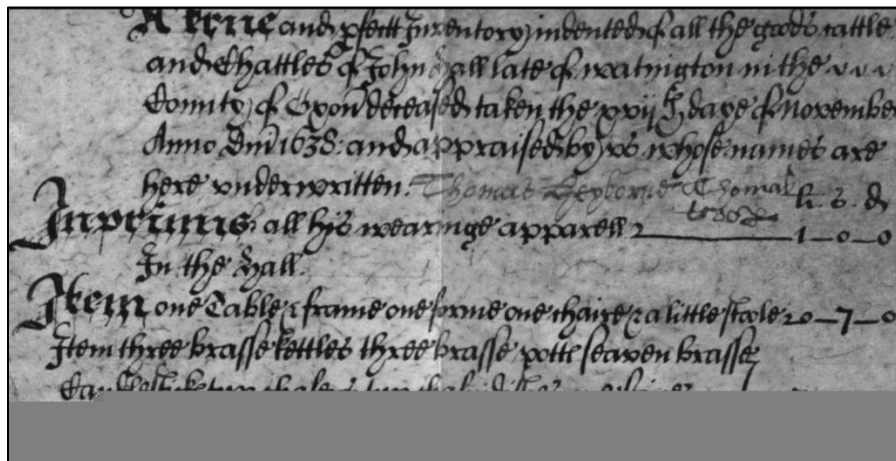 A true and pfectt Inventory indented of all the goods cattle
and Chattles of John Hall late of watlington in the
County of Oxon deceased taken the xvijth daye of November
Anno Dm 1638: and appraised by us whose names are
here underwritten. Thomas Thomas
li. s. d
Inprimis all his wearinge apparell 1–0–0
In the Hall.
Item one Table & frame one forme one chaire & a little stoole 0–7–0
Item three brasse kettles three brasse potts seaven brasse